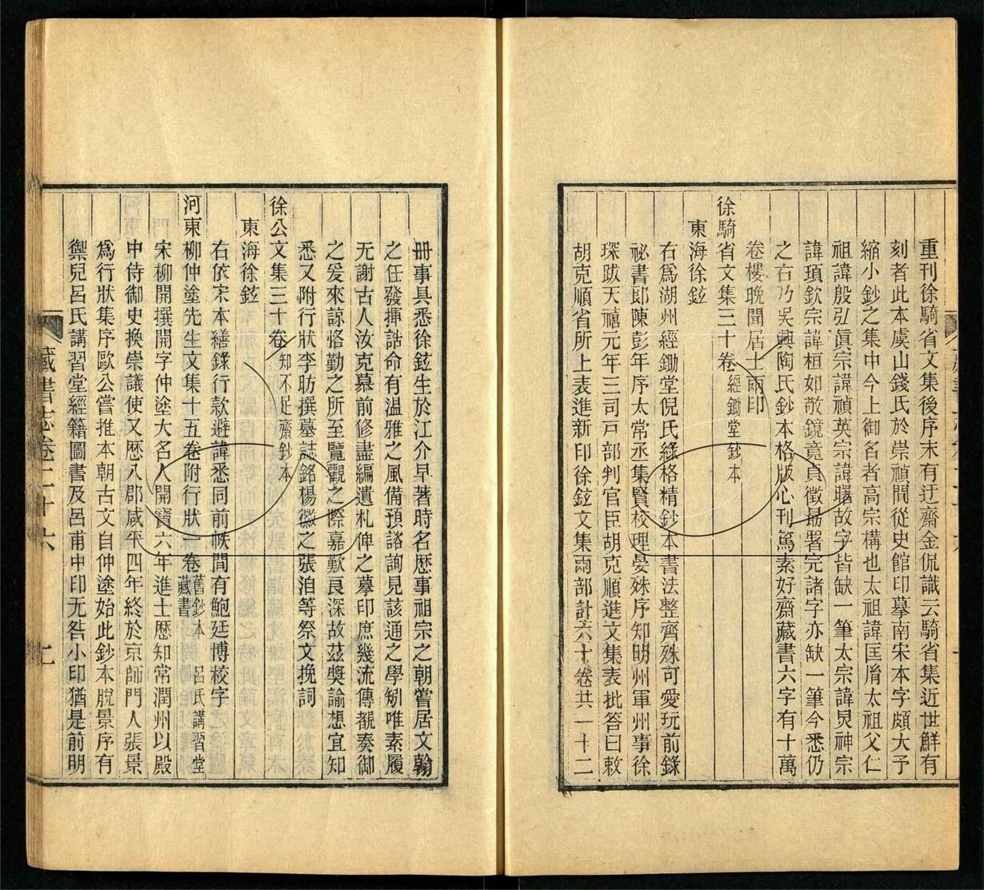 重刊徐騎省文集後序末有迂齋金侃識云騎省集近世鮮有
刻者此本虞山錢氏於崇禎間從史館印摹南宋本字頗大予
縮小鈔之集中今上御名者高宗構也太祖諱匡胤太祖父仁
祖諱殷弘眞宗諱禎英宗諱曙故字皆缺一筆太宗諱炅神宗
諱頊欽宗諱桓如敬鏡竟貞徵勗署完諸字亦缺一筆今悉仍
之右乃吳興陶氏鈔本格版心刊篤素好齋藏書六字有十萬
卷樓晚聞居士兩印
徐騎省文集三十卷 經鋤堂鈔本
東海徐鉉
右爲湖州經鋤堂倪氏綠格精鈔本書法整齊殊可愛玩前錄
祕書郎陳彭年序太常丞集賢校理晏殊序知明州軍州事徐
琛跋天禧元年三司戸部判官臣胡克順進文集表批答曰敕
胡克順省所上表進新印徐鉉文集兩部計六十卷共一十二
冊事具悉徐鉉生於江介早著時名歷事祖宗之朝嘗居文翰
之任發揮誥命有温雅之風備預諮詢見該通之學勑唯素履
无謝古人汝克慕前修盡編遺札俾之摹印庶幾流傳覩奏御
之爰來諒恪勤之所至覽觀之際嘉歎良深故茲奬諭想宜知
悉又附行狀李昉撰墓誌銘楊徽之張洎等祭文挽詞
徐公文集三十卷 知不足齋鈔本
東海徐鉉
右依宋本繕錄行款避諱悉同前帙間有鮑廷博校字
河東柳仲塗先生文集十五卷附行狀一卷 舊鈔本 呂氏講習堂藏書
宋柳開撰開字仲塗大名人開寶六年進士歷知常潤州以殿
中侍御史換崇議使又歷八郡咸平四年終於京師門人張景
爲行狀集序歐公嘗推本朝古文自仲塗始此鈔本脫景序有
禦兒呂氏講習堂經籍圖書及呂甫中印无咎小印猶是前明
藏書志卷二十六